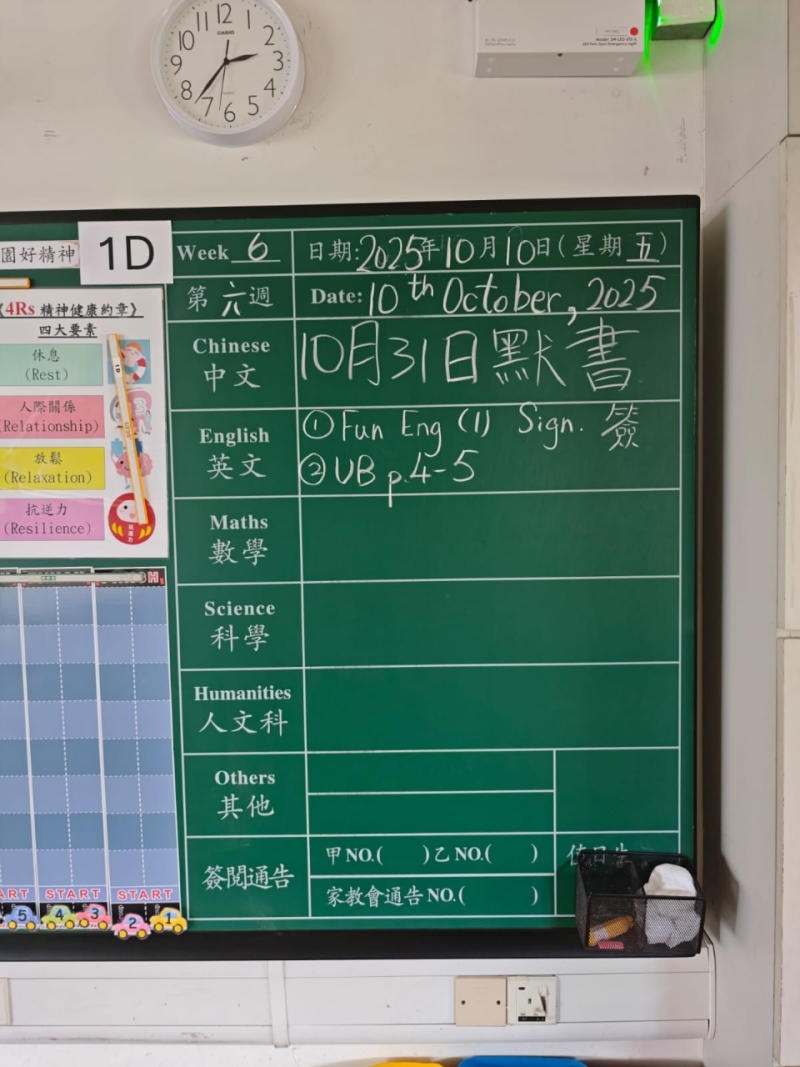 12
1
2
3
4
5
6
7
8
9
10
11
CASIO
園好精神
1D
《4Rs 精神健康約章》
四大要素
休息
(Rest)
人際關係
(Relationship)
放鬆
(Relaxation)
抗逆力
(Resilience)
Week 6 日期:2025年10月10日(星期五)
第六週 Date: 10th October, 2025
Chinese
中文
10月31日默書
English
英文
① Fun Eng (1) Sign. 簽
② UB p.4-5
Maths
數學
Science
科學
Humanities
人文科
Others
其他
簽閱通告
甲NO.( )乙NO.( )
家教會通告NO.( )
值日生
ART START START
5 4 3 2 1